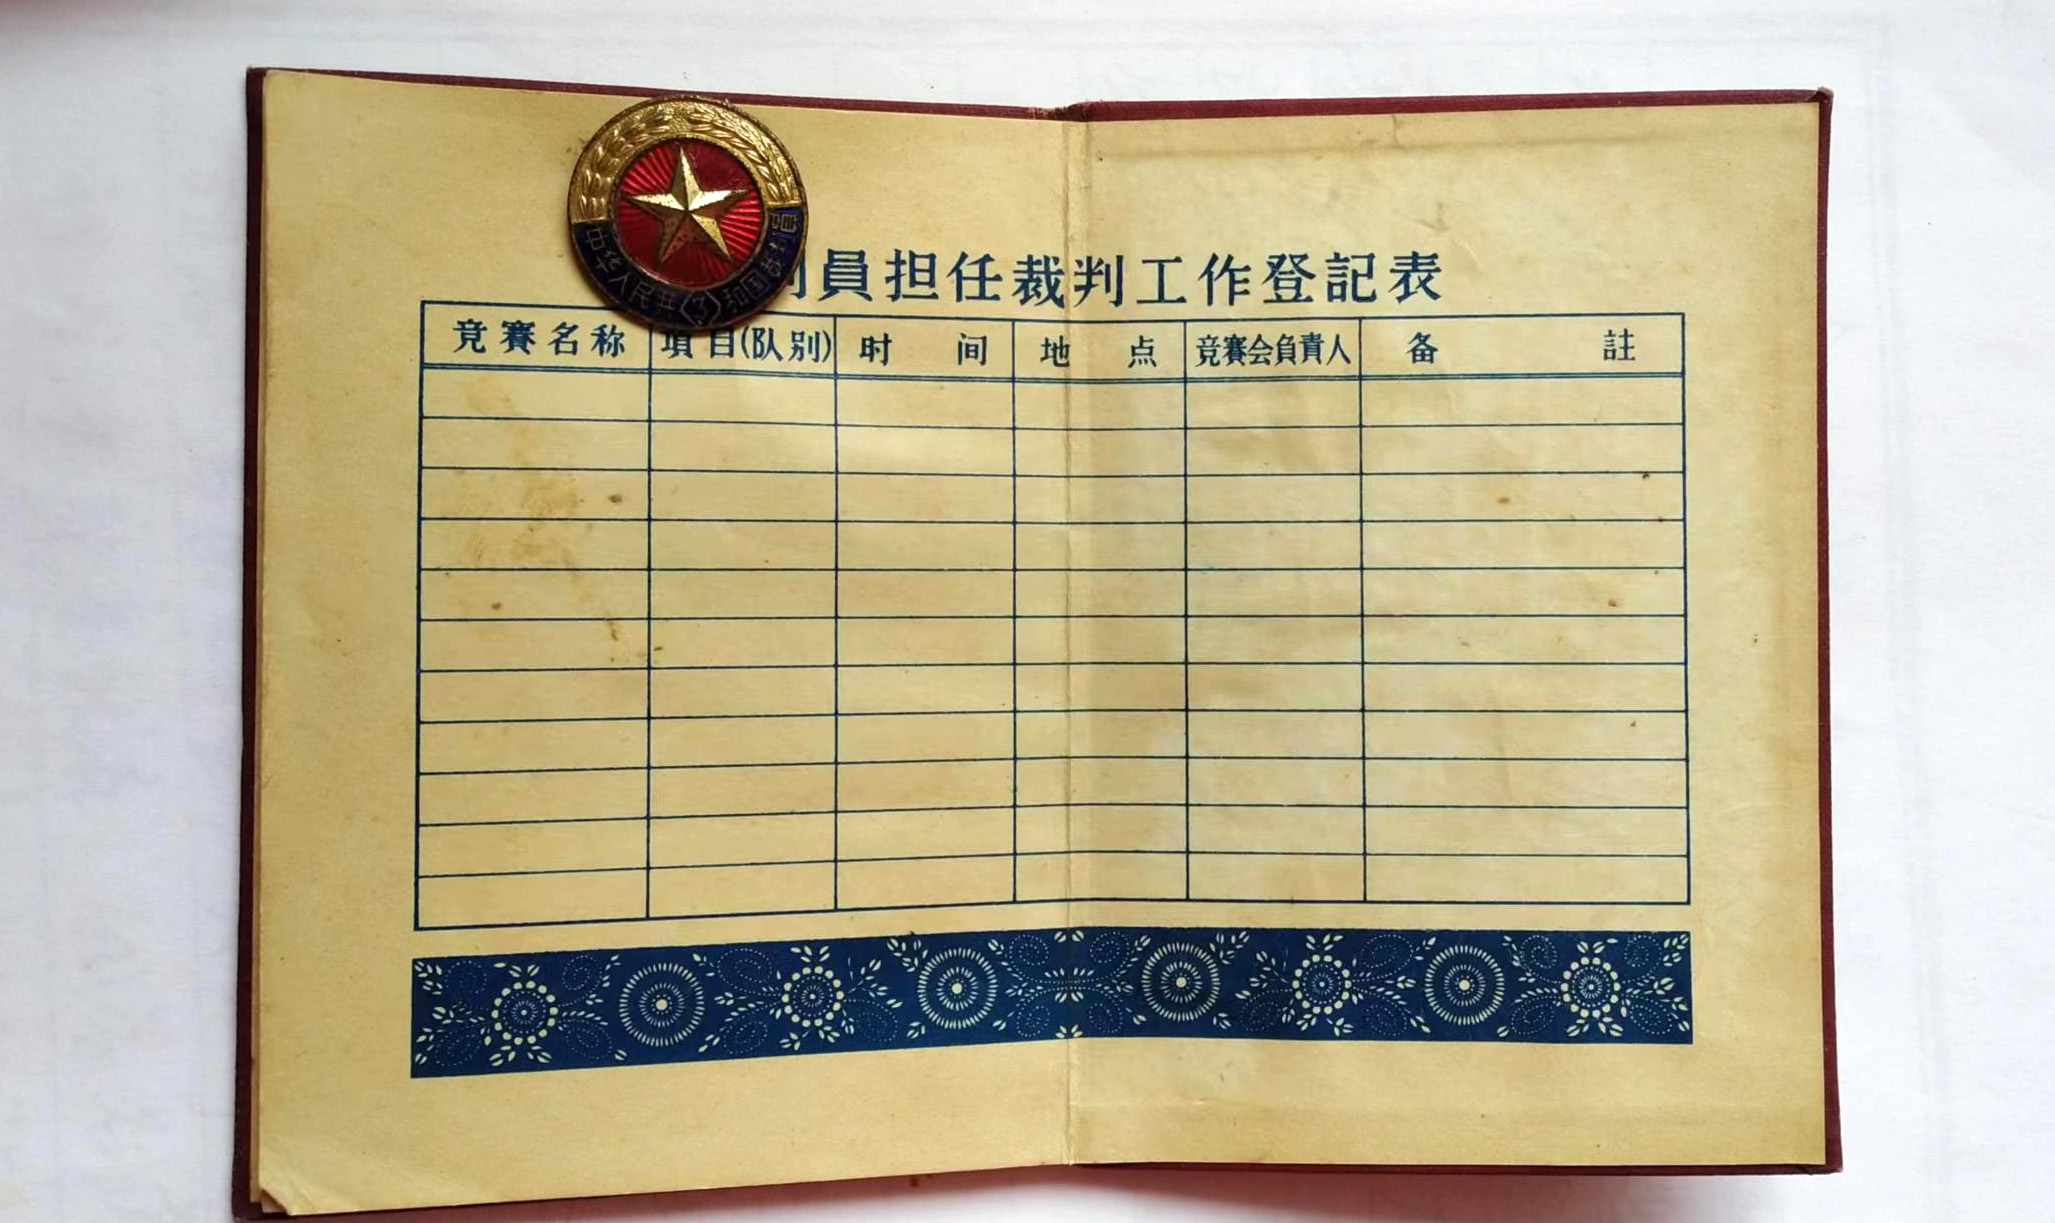 中华人民共(3)和国裁判員
判員担任裁判工作登記表
竞賽名称 項目(队别) 时间 地点 竞賽会負責人 备註